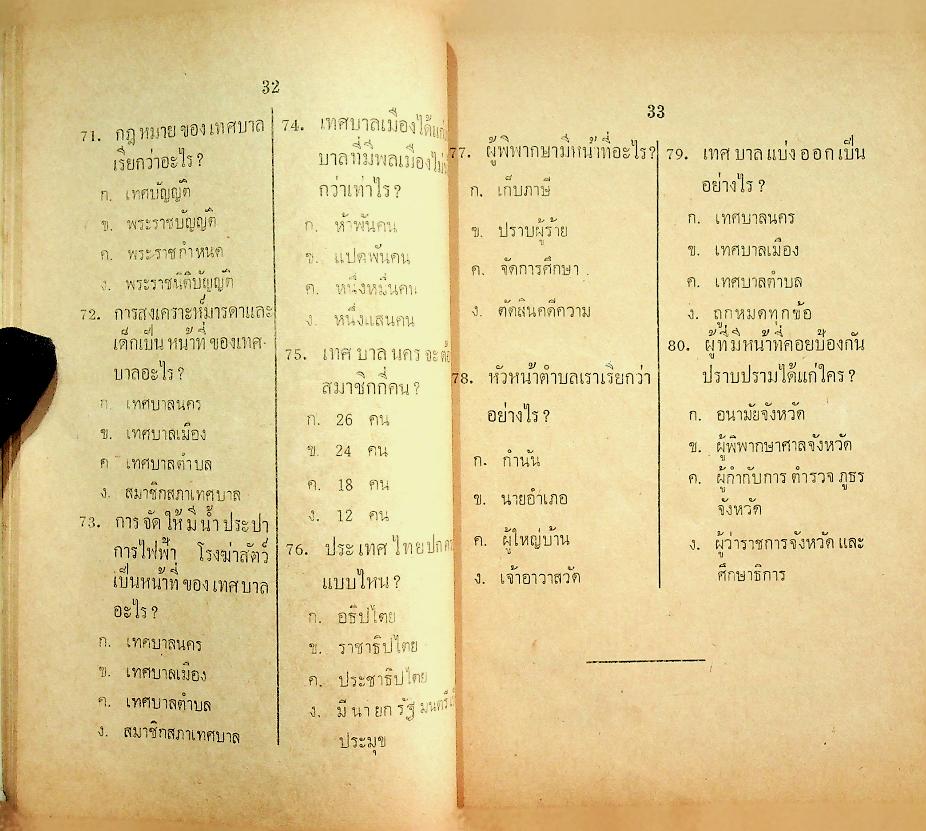 32
71. กฎหมายของเทศบาล
เรียกว่าอะไร?
ก. เทศบัญญัติ
ข. พระราชบัญญัติ
ค. พระราชกำหนด
ง. พระราชนิติบัญญัติ
72. การสงเคราะห์มารดาและ
เด็กเป็นหน้าที่ของเทศ-
บาลอะไร?
ก. เทศบาลนคร
ข. เทศบาลเมือง
ค เทศบาลตำบล
ง. สมาชิกสภาเทศบาล
73. การจัดให้มีน้ำประปา
การไฟฟ้า โรงฆ่าสัตว์
เป็นหน้าที่ของเทศบาล
อะไร?
ก. เทศบาลนคร
ข. เทศบาลเมือง
ค. เทศบาลตำบล
ง. สมาชิกสภาเทศบาล
74. เทศบาลเมืองได้แก่
บาลที่มีพลเมืองไม่
กว่าเท่าไร?
ก. ห้าพันคน
ข. แปดพันคน
ค. หนึ่งหมื่นคน
ง. หนึ่งแสนคน
75. เทศบาลนครจะ
สมาชิกกี่คน?
ก. 26 คน
ข. 24 คน
ค. 18 คน
ง. 12 คน
76. ประเทศไทยปก
แบบไหน?
ก. อธิปไตย
ข. ราชาธิปไตย
ค. ประชาธิปไตย
ง. มีนายกรัฐมนตรี
ประมุข
33
77. ผู้พิพากษามีหน้าที่อะไร?
ก. เก็บภาษี
ข. ปราบผู้ร้าย
ค. จัดการศึกษา
ง. ตัดสินคดีความ
78. หัวหน้าตำบลเราเรียกว่า
อย่างไร?
ก. กำนัน
ข. นายอำเภอ
ค. ผู้ใหญ่บ้าน
ง. เจ้าอาวาสวัด
79. เทศบาลแบ่งออกเป็น
อย่างไร?
ก. เทศบาลนคร
ข. เทศบาลเมือง
ค. เทศบาลตำบล
ง. ถูกหมดทุกข้อ
80. ผู้ที่มีหน้าที่คอยป้องกัน
ปราบปรามได้แก่ใคร?
ก. อนามัยจังหวัด
ข. ผู้พิพากษาศาลจังหวัด
ค. ผู้กำกับการตำรวจภูธร
จังหวัด
ง. ผู้ว่าราชการจังหวัดและ
ศึกษาธิการ